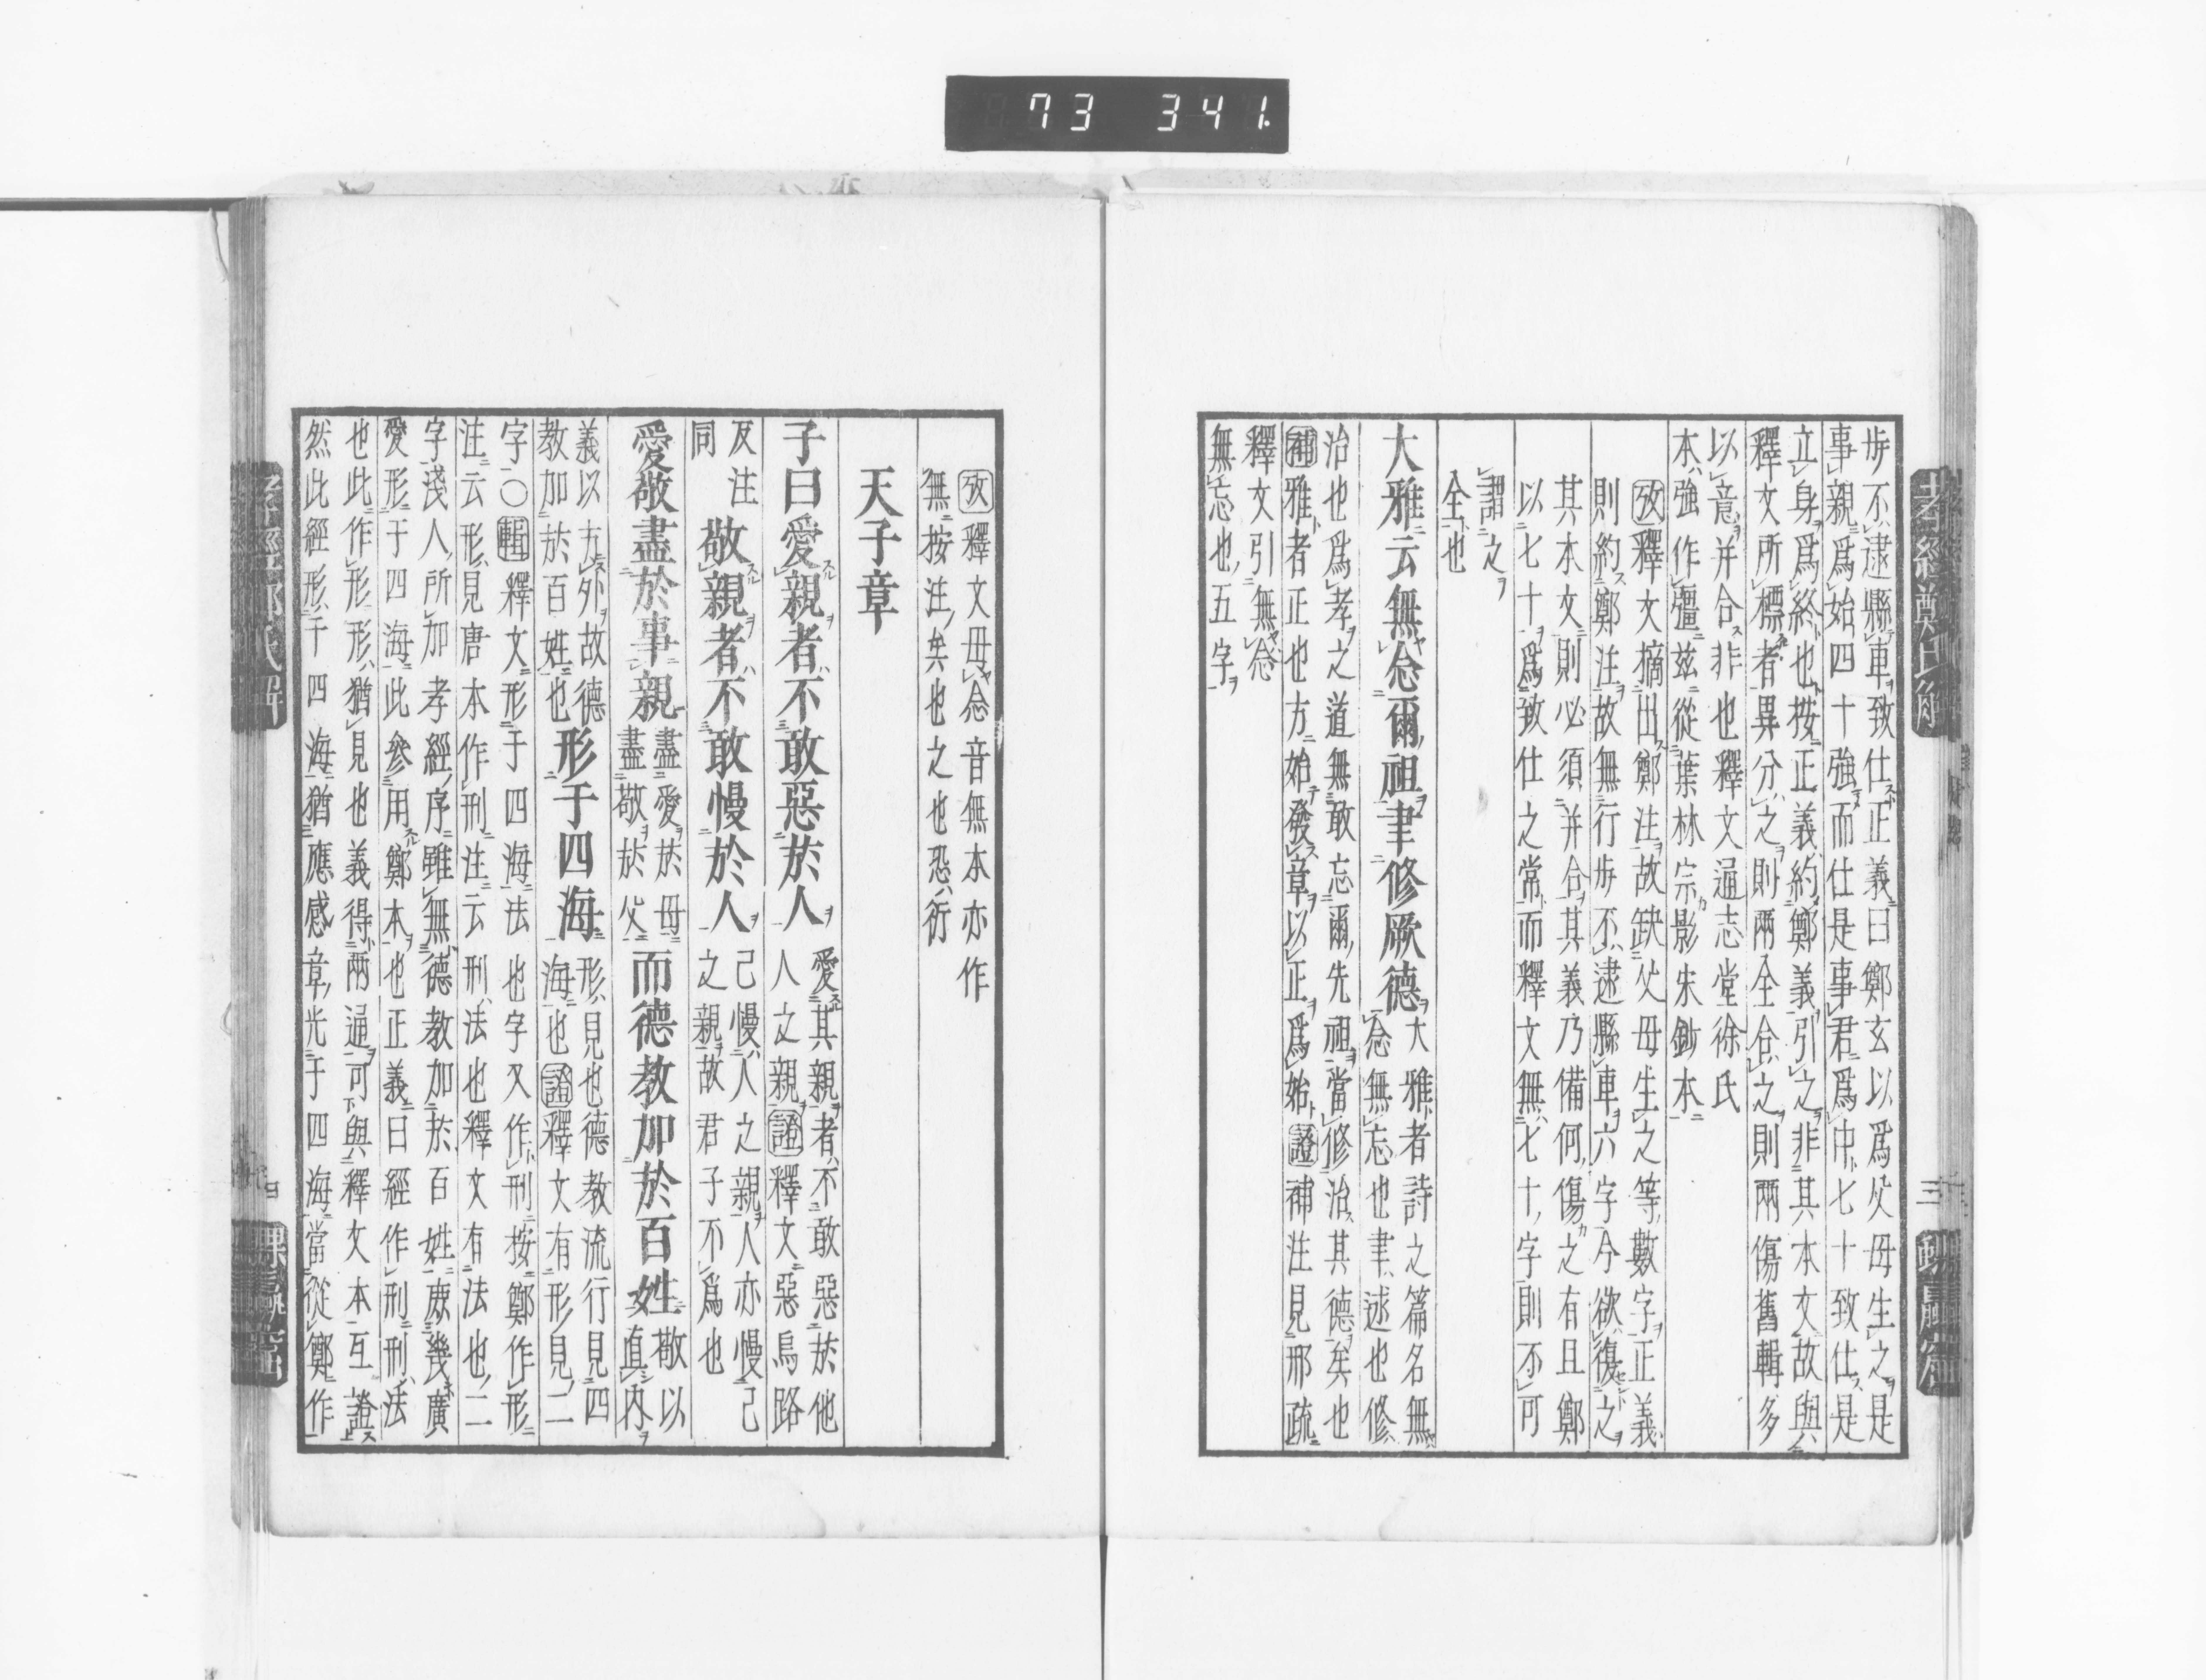 73 341
步不逮縣車致仕正義曰鄭玄以爲父母生之是
事親爲始四十強而仕是事君爲中七十致仕是
立身爲終也按正義約鄭義引之非其本文故與
釋文所標者異分之則兩全合之則兩傷舊輯多
以意并合非也釋文通志堂徐氏
本強作彊茲從葉林宗影朱鈔本
攷釋文摘出鄭注故缺父母生之等數字正義
則約鄭注故無行步不逮縣車六字今欲復之
其本文則必須并合其義乃備何傷之有且鄭
以七十爲致仕之常而釋文無七十字則不可
謂之
全也
大雅云無念爾祖聿修厥德
大雅者詩之篇名無
念無忘也聿述也修
治也爲孝之道無敢忘爾先祖當修治其德矣也
補雅者正也方始發章以正爲始證補注見邢疏
釋文引無念
無忘也五字
孝經鄭氏解
三
攷釋文毋念音無本亦作
無按注矣也之也恐衍
天子章
子曰愛親者不敢惡於人
愛其親者不敢惡於他
人之親證釋文惡烏路
反注
同
敬親者不敢慢於人
己慢人之親人亦慢己
之親故君子不爲也
愛敬盡於事親
盡愛於母
盡敬於父
而德教加於百姓
敬以
直內
義以方外故德
教加於百姓也
形于四海
形見也德教流行見四
海也證釋文有形見二
字○輯釋文形于四海法也字又作刑按鄭作形
注云形見唐本作刑注云刑法也釋文有法也二
字淺人所加孝經序雖無德教加於百姓庶幾廣
愛形于四海此參用鄭本也正義曰經作刑刑法
也此作形形猶見也義得兩通可與釋文本互證
然此經形于四海猶應感章光于四海當從鄭作